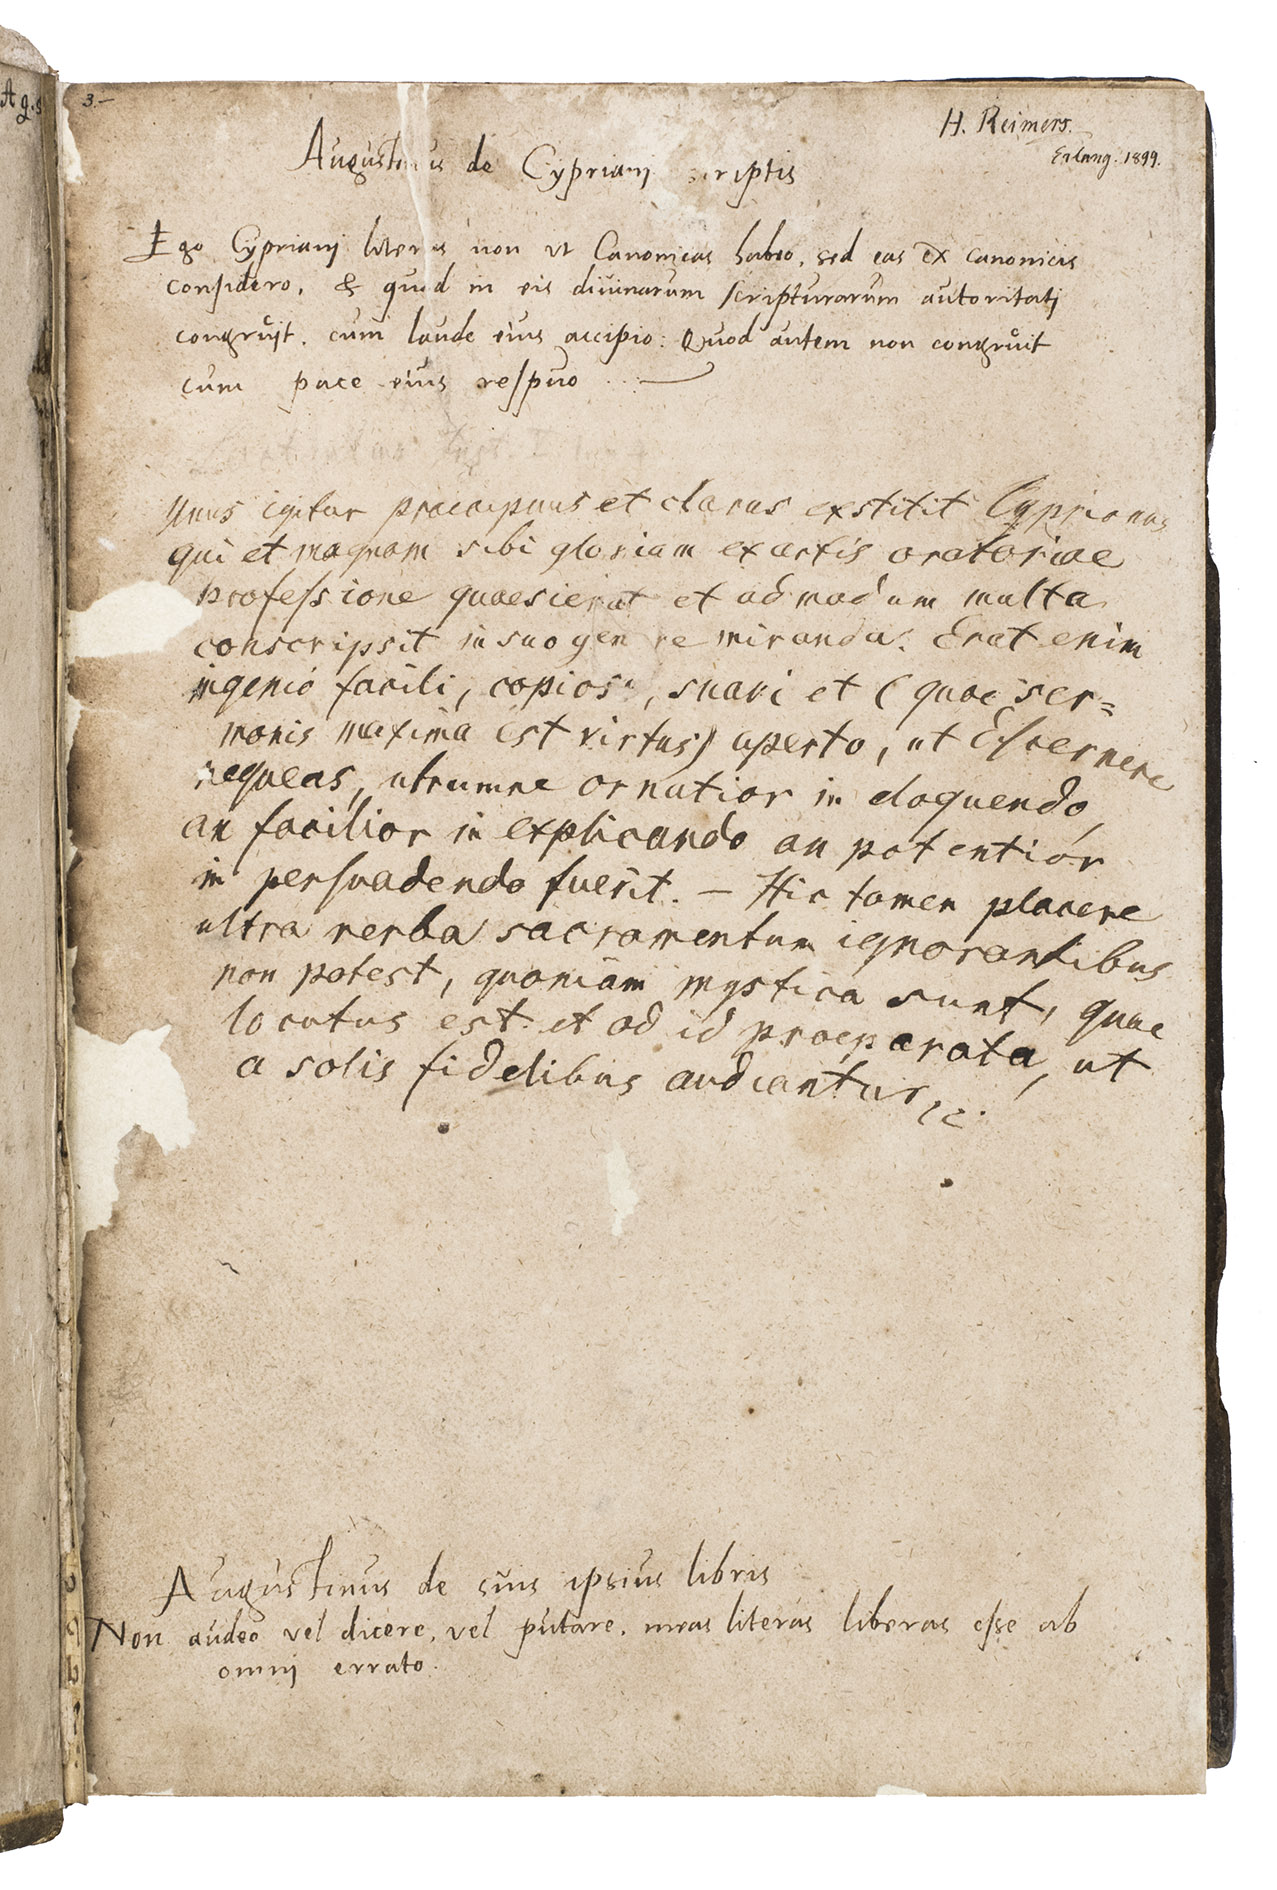 Ag.s
3.-
H. Reimers.
Erlang. 1899.
Augustinus de Cypriani scriptis
Ego Cypriani literas non ut Canonicas habeo, sed eas ex canonicis
considero, & quod in eis divinarum scripturarum autoritati
congruit, cum laude eius accipio: Quod autem non congruit
cum pace eius respuo
Unus igitur praecipuus et clarus exstitit Cyprianus
qui et magnam sibi gloriam ex artis oratoriae
professione quaesierat et admodum multa
conscripsit in suo genere miranda. Erat enim
ingenio facili, copioso, suavi et (quae ser=
monis maxima est virtus) aperto, ut discernere
nequeas, utrumne ornatior in eloquendo,
an facilior in explicando an potentior
in persuadendo fuerit. – Hic tamen placere
ultra verba sacramentum ignorantibus
non potest, quoniam mystica sunt, quae
locutus est et ad id praeparata, ut
a solis fidelibus audiantur
Augustinus de suis ipsius libris
Non audeo vel dicere, vel putare, meas literas liberas esse ab
omni errato.